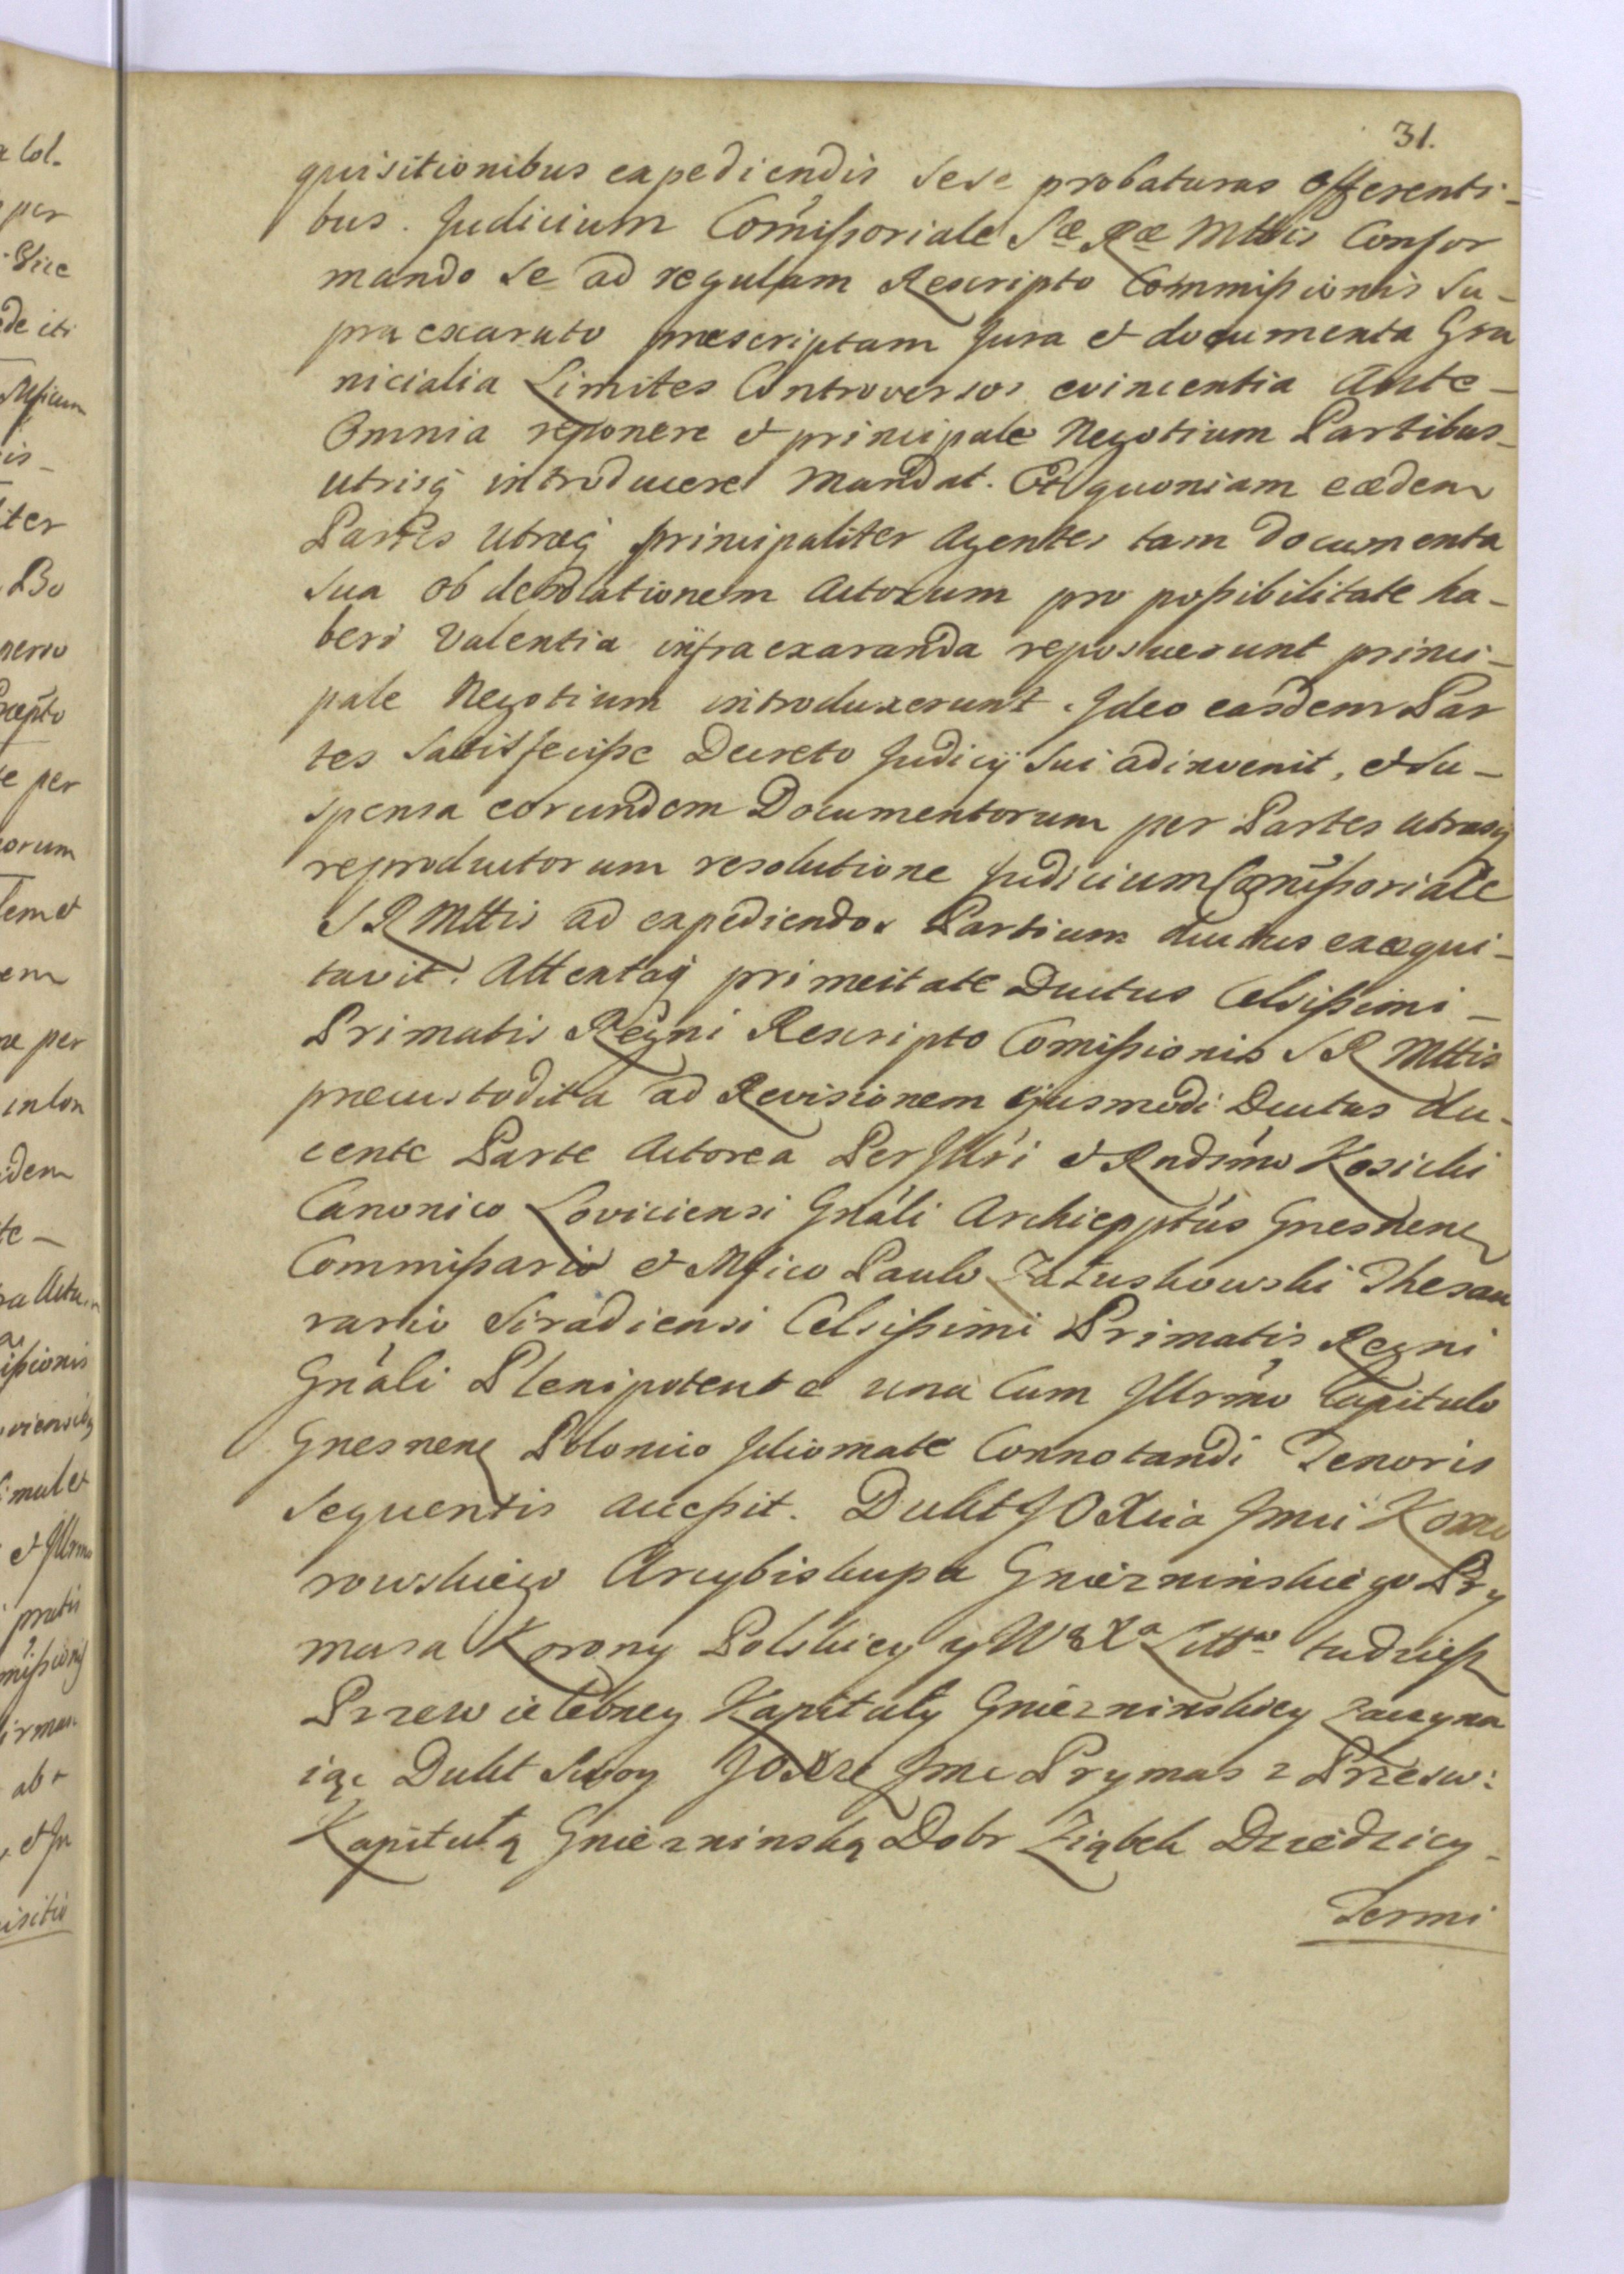 31.
quisitionibus expediendis sese probaturas offerenti-
bus. Judicium Com̃ißoriale Sæ Ræ Mttis Confor
mando se ad regulam Rescripto Commißionis Su-
pra exarato præscriptam Jura et documenta Gra
nicialia Limites Controversos evincentia Ante-
Omnia reponere et principale Negotium Partibus-
utrisq̃ introducere Mandat. Et quoniam eædem
Partes Utræq̃ principaliter Agentes tam documenta
sua ob desolationem Actorum pro poßibilitate ha-
beri Valentia infra exaranda reposuerunt princi-
pale Negotium introduxerunt. Ideo easdem Par
tes Satisfeciße Decreto Judicij Sui adinvenit, et su-
spensa eorundem Documentorum per Partes utrasq̃
reproductorum resolutione Judicium Com̃ißoriale
S R Mttis ad expediendos Partium ductus exæqui-
tavit. Attentaq̃ primeitate Ductus Celsißimi-
Primatis Regni Rescripto Comißionis S R Mttis
præcustodita ad Revisionem ejusmodi Ductus du-
cente Parte Actorea Per Jllr̃i et Rndĩmo Kosicki
Canonico Loviciensi Gnáli Archieppt̃us Gnesnen
Commißario et Mfico Paulo Załuskowski Thesau
rario Siradiensi Celsißimi Primatis Regni
Gnáli Plenipotente una Cum Jllrm̃o Capitulo
Gnesnen Polonico Jdiomate Connotandi Tenoris
Sequentis Acceßit. Dukt J O Xcia Jmci Komo
rowskiego Arcybiskupa Gniezninskiego Pry
masa Korony Polskiey y W X Litt tudzieß
Przewielebney Kapituły Gnieznińskiey zaczyna
iąc Dukt Swoy J O Xże Jmc Prymas z Przesw:
Kapitułą Gnieznińską Dobr Ziąbek Dziedzicy-
Termi